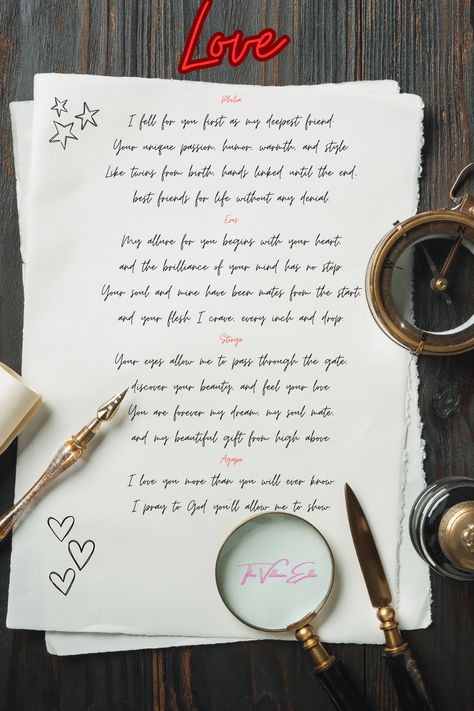 Love
Philia
I fell for you first as my deepest friend.
Your unique passion, humor, warmth, and style.
Like twins from birth, hands linked until the end,
best friends for life without any denial.
Eros
My allure for you begins with your heart,
and the brilliance of your mind has no stop.
Your soul and mine have been mates from the start,
and your flesh I crave, every inch and drop.
Storge
Your eyes allow me to pass through the gate,
discover your beauty, and feel your love.
You are forever my dream, my soul mate,
and my beautiful gift from high above.
Agape
I love you more than you will ever know
I pray to God you'll allow me to show.
The Villain Elle